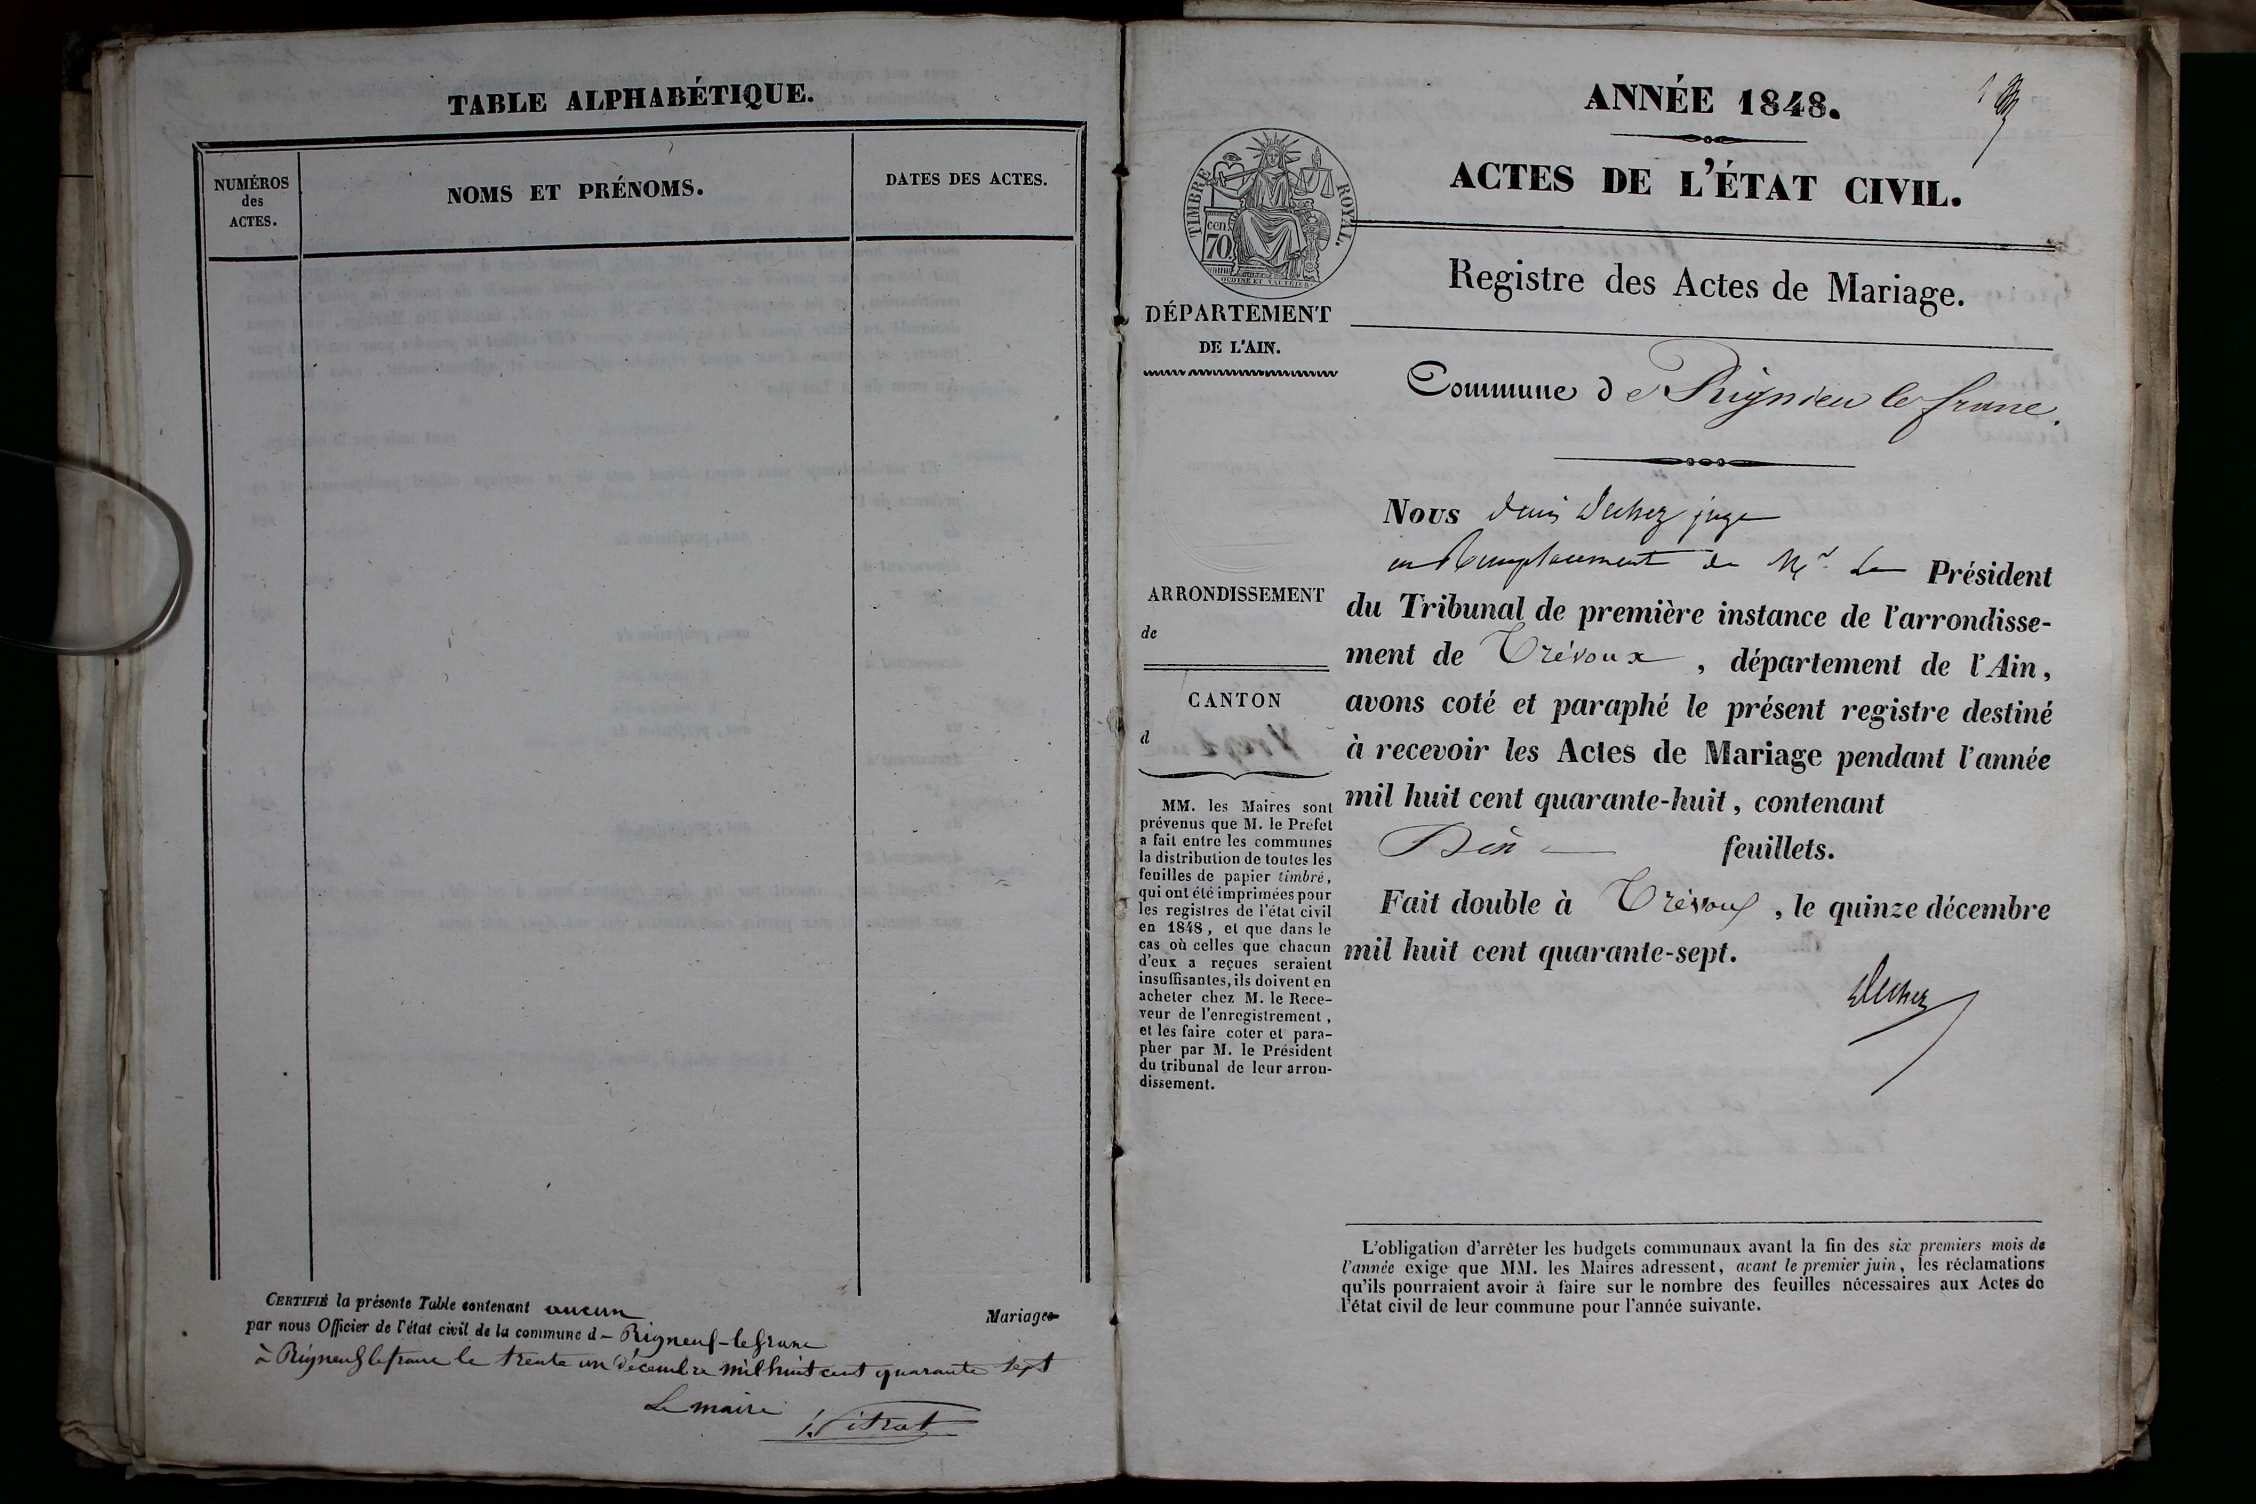 TABLE ALPHABÉTIQUE.
NUMÉROS
des
ACTES.
NOMS ET PRÉNOMS.
DATES DES ACTES.
CERTIFIÉ la présente Table contenant aucun Mariages
par nous Officier de l'état civil de la commune d - Rigneuf-lefranc
à Rigneuf lefranc le trente un décembre mil huit cent quarante sept
Le maire
ANNÉE 1848.
ACTES DE L'ÉTAT CIVIL.
TIMBRE ROYAL.
cen.
70.
DÉPARTEMENT
DE L'AIN.
Registre des Actes de Mariage.
Commune de Rignieu le franc.
ARRONDISSEMENT
de
CANTON
d
MM. les Maires sont
prévenus que M. le Préfet
a fait entre les communes
la distribution de toutes les
feuilles de papier timbré,
qui ont été imprimées pour
les registres de l'état civil
en 1848, et que dans le
cas où celles que chacun
d'eux a reçues seraient
insuffisantes, ils doivent en
acheter chez M. le Rece-
veur de l'enregistrement,
et les faire coter et para-
pher par M. le Président
du tribunal de leur arron-
dissement.
Nous Denis juge
en Remplacement de Mr. Le Président
du Tribunal de première instance de l'arrondisse-
ment de Trévoux, département de l'Ain,
avons coté et paraphé le présent registre destiné
à recevoir les Actes de Mariage pendant l'année
mil huit cent quarante-huit, contenant
feuillets.
Fait double à Trévoux, le quinze décembre
mil huit cent quarante-sept.
L'obligation d'arrêter les budgets communaux avant la fin des six premiers mois de
l'année exige que MM. les Maires adressent, avant le premier juin, les réclamations
qu'ils pourraient avoir à faire sur le nombre des feuilles nécessaires aux Actes de
l'état civil de leur commune pour l'année suivante.